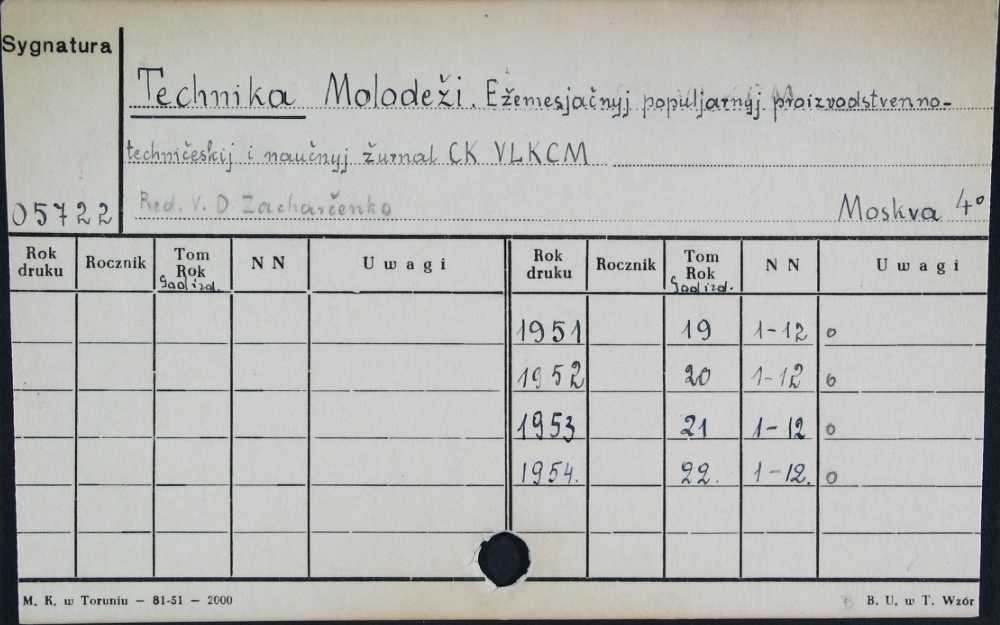 Sygnatura
Technika Molodeži. Ežemesjačnyj populjarnyj proizvodstvenno-
techničeskij i naučnyj žurnal CK VLKCM
05722 Red. V. D. Zacharčenko Moskva 4°
Rok druku Rocznik Tom Rok God izd. NN Uwagi Rok druku Rocznik Tom Rok God izd. NN Uwagi
1951 19 1-12 o
1952 20 1-12 o
1953 21 1-12 o
1954. 22. 1-12. o
M. K. w Toruniu — 81-51 — 2000 B. U. w T. Wzór